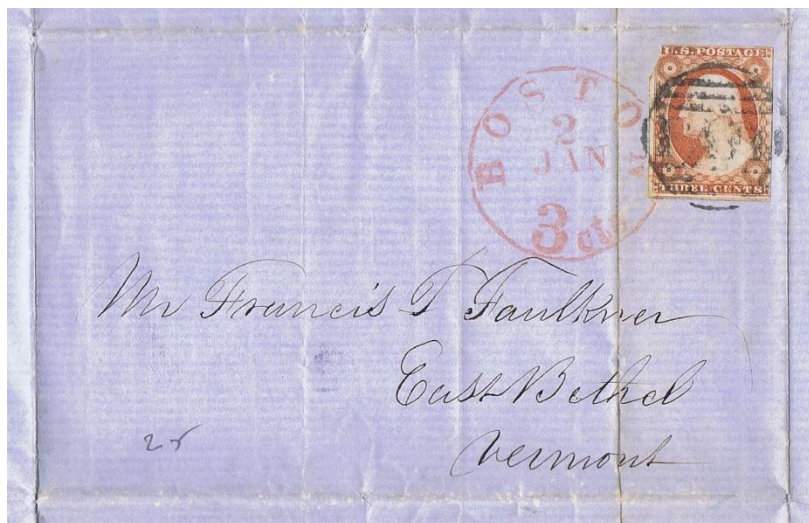 U.S. POSTAGE
THREE CENTS
BOSTON
2
JAN
3 cts
Mr Francis T Faulkner
East Bethel
Vermont
25